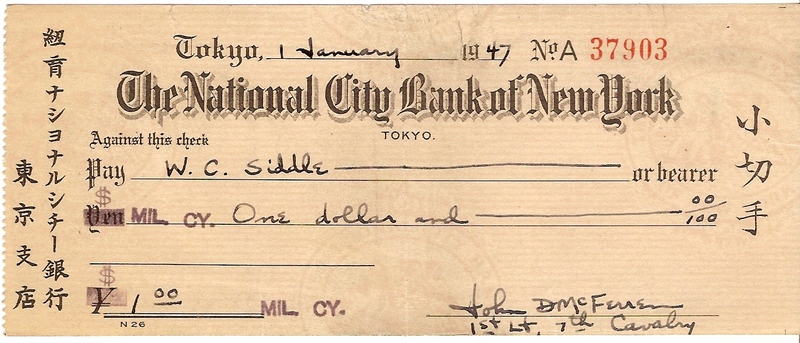 紐育ナショナルシチー銀行
東京支店
Tokyo, 1 January 1947 No. A 37903
The National City Bank of New York
TOKYO.
Against this check
Pay W. C. Siddle or bearer
$
Yen MIL. CY. One dollar and 00/100
$
¥ 1 00 MIL. CY.
N 26
John D McFerren
1st Lt, 7th Cavalry
小切手